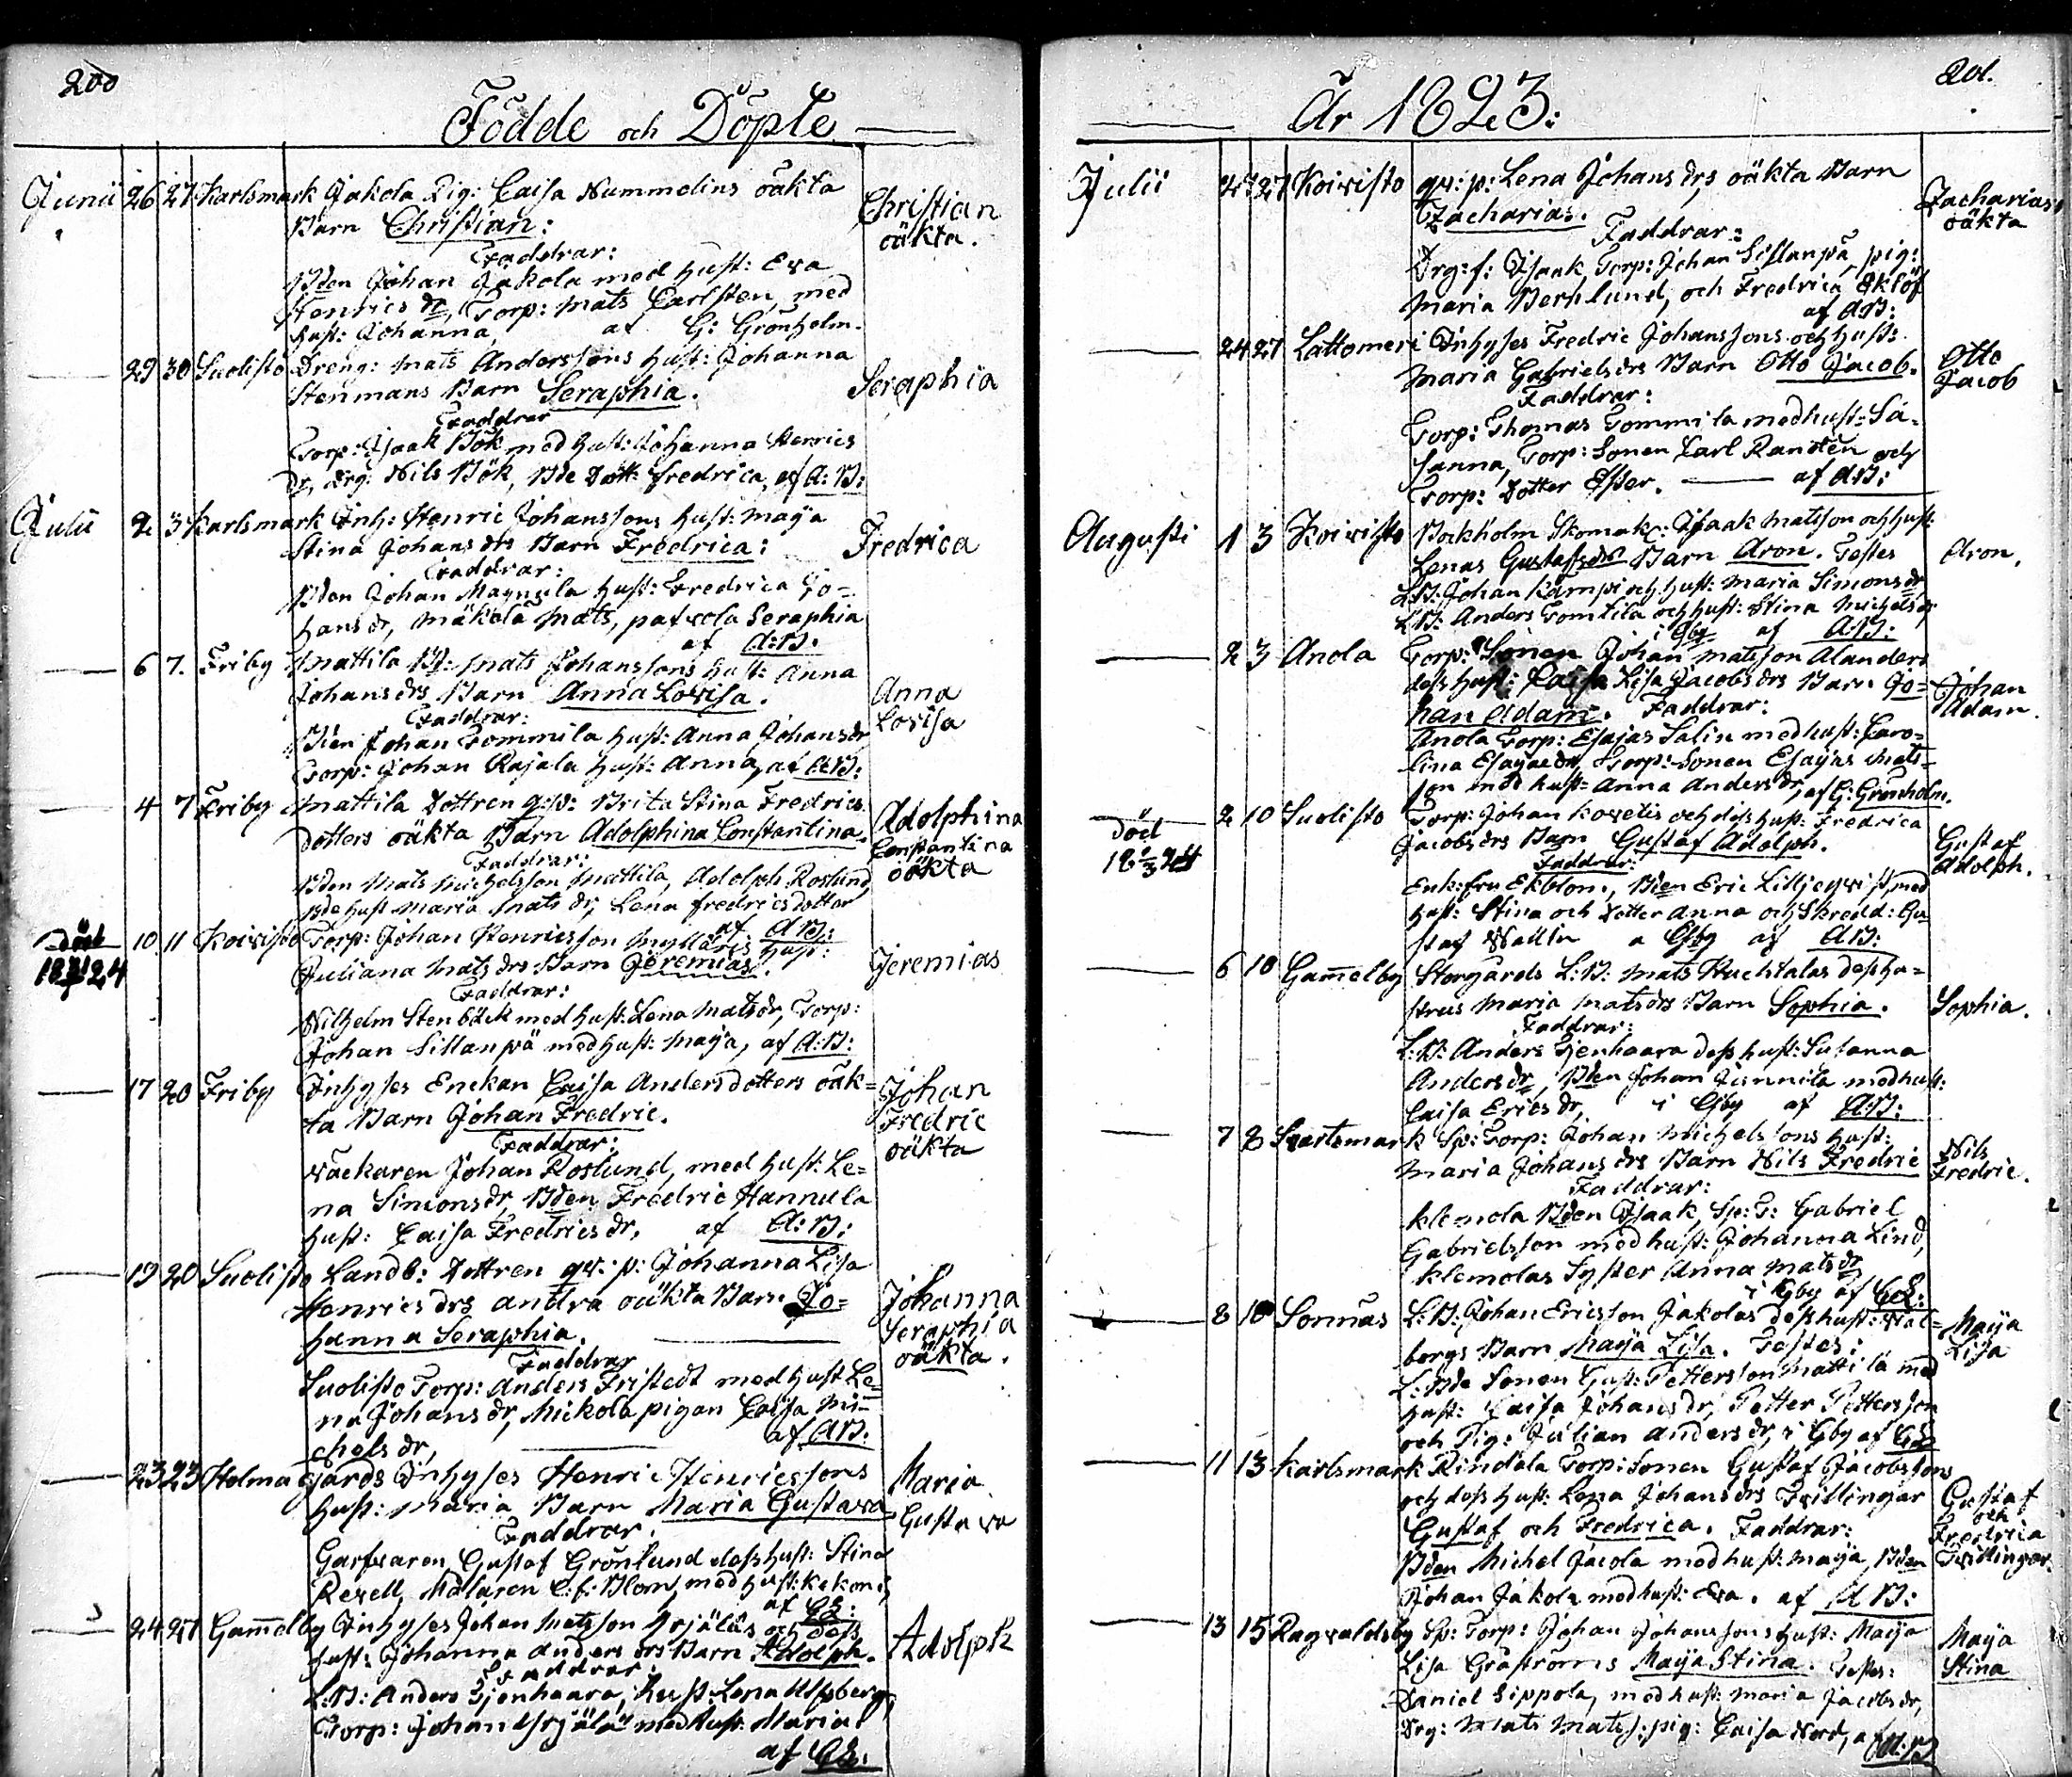 200
Födde och Döpte
Junii 26 27 Karlsmark Jakola Pig: Caisa Nummelins oäkta
Barn Christian:
Christian
oäkta.
Faddrar:
Bden Johan Jakola med hust: Eva
Henrics dr, Torp: Mats Carlsten, med
hust: Johanna, af G: Grönholm.
29 30 Suolisto Dreng: Mats Anderssons hust: Johanna
Stenmans Barn Seraphia.
Seraphia
Faddrar
Torp: Isaak Bök med hust: Johanna Henrics
dr, Drg: Nils Bök, Bde Dott: Fredrica, af A: B:
Julii 2 3 Karlsmark Inh: Henric Johanssons hust: Maja
Stina Johans drs Barn Fredrica:
Fredrica
Faddrar:
Bden Johan Magnula hust: Fredrica Jo=
hans dr, Mäkölä Mats, Seraphia
af A: B:
6 7. Friby Mattila B: Mats Johanssons hust: Anna
Johans drs Barn Anna Lovisa.
Anna
Lovisa
Faddrar:
Bden Johan Tommila hust: Anna Johans dr
Torp: Johan Rajala hust: Anna, af A:B:
4 7 Friby Mattila Dottren q:p: Brita Stina Fredrics
dotters oäkta Barn Adolphina Constantina.
Adolphina
Constantina
oäkta
Faddrar:
Bden Mats Michelsson Mattila, Adolph Roslund
Bde hust Maria Mats dr, Lena Fredricsdotter
af A:B:
död
10 11 Koivisto Torp: Johan Henricsson Myllaris hust:
Juliana Mats drs Barn Jeremias.
Jeremias
Faddrar:
Wilhelm Stenbäck med hust: Lena Mats dr, Torp:
Johan Sillanpä med hust: Maja, af A:B:
17 20 Friby Inhyses Enckan Caisa Andersdotters oäk=
ta Barn Johan Fredric.
Johan
Fredric
oäkta
Faddrar:
Väckaren Johan Roslund, med hust: Le=
na Simons dr, Bden Fredric Hannula
hust: Caisa Fredrics dr, af A: B:
19 20 Suolisto Landb: Dottren qv: p: Johanna Lisa
Henrics drs andra oäkta Barn Jo=
hanna Seraphia.
Johanna
Seraphia
oäkta.
Faddrar
Suolisto Torp: Anders Fristedt med hust Le=
na Johans dr, Mickola pigan Caisa Mi=
chels dr, af A:B:
23 23 Holma Gjärds Inhyses Henric Henricssons
hust: Maria Barn Maria Gustava
Maria
Gustava
Faddrar.
Garfvaren Gustaf Grönlund dess hust: Stina
Rexell, Målaren C: f: Blom, med hust:
24 27 Gam̄elby Inhyses Johan Matsson Yrjälas och dess
hust: Johanna Anders drs Barn Adolph.
Adolph
Faddrar:
L:B: Anders Tjenhaara, hust: Lena Ulfsberg,
Torp: Johan Yrjälä med hust: Maria
af
201.
År 1823:
Julii 27 27 Koivisto qv: p: Lena Johans drs oäkta Barn
Zacharias.
Zacharias
oäkta
Faddrar:
Drg: f: Isaak, Torp: Johan Sillanpä, pig:
Maria Berklund, och Fredrica Eklöf
af A:B:
24 27 Lattomeri Inhyses Fredric Johanssons och hust:
Maria Gabriels drs Barn Otto Jacob.
Otto
Jacob
Faddrar:
Torp: Thomas Tommila med hust: Su=
sanna, Torp: Sonen Carl Randten och
Torp: Dotter Ester. af A:B:
Augusti 1 3 Koivisto Bockholm Skomak: Isaak Matsson och hust:
Lenas Gustafsdrs Barn Aron. Testes
Aron.
L:B: Johan Kämpi och hust: Maria Simons dr
L:B: Anders Tomtila och hust: Stina Michels dr
i Gby af A:B:
2 3 Anola Torp: Sonen Johan Matsson Alanders
dess hust: Caisa Lisa Jacobs drs Barn Jo=
han Adam. Faddrar:
Johan
Adam.
Anola Torp: Esajas Salin med hust: Caro=
lina Esajae dr, Torp: Sonen Esajas Mats=
son med hust: Anna Anders dr, af G: Grönholm.
död
2 10 Suolisto Torp: Johan Kovelis och dess hust: Fredrica
Jacobs drs Barn Gustaf Adolph.
Gustaf
Adolph.
Faddrar:
Enk: fru Ekblom, Bden Eric Liljeqvist, med
hust: Stina och Dotter Anna och Skredd: Gu=
staf Wallin i Gby af A:B:
6 10 Gam̄elby Storgårds L:B: Mats Huchtalas dess hu=
strus Maria Mats drs Barn Sophia.
Sophia.
Faddrar:
L:B: Anders Tjenhaara dess hust: Susanna
Anders dr, Bden Johan Junnila med hust:
Caisa Erics dr, i Gby af A:B:
7 8 Svartsmark Sp: Torp: Johan Michelssons hust:
Maria Johans drs Barn Nils Fredric
Nils
Fredric.
Faddrar:
Klemola Bden Isaak, Sp: T: Gabriel
Gabrielsson med hust: Johanna Lind,
Klemolas Syster Anna Mats dr
i Gby af
8 10 Sonnäs L:B: Johan Ericsson Jakolas dess hust: Val=
borgs Barn Maja Lisa. Testes:
Maja
Lisa
L: Bde Sonen Gust: Pettersson Mattila med
hust: Caisa Johans dr, Petter Pettersson
och Pig: Julian Anders dr, i Gby af
11 13 Karlsmark Rindala Torp: Sonen Gustaf Jacobssons
och dess hust: Lena Johans drs Tvillingar
Gustaf och Fredrica. Faddrar:
Gustaf
och
Fredrica
Tvillingar.
Bden Michel Jacola med hust: Maja, Bden
Johan Jakola med hust: Eva. af A B:
13 15 Ragvaldsby Sp: Torp: Johan Johanssons hust: Maja
Lisa Gråströms Maja Stina. Testes:
Maja
Stina
Daniel Sippola, med hust: Maria Jacobs dr,
Drg: Mats Mats s: pig: Caisa Nord, af A:B